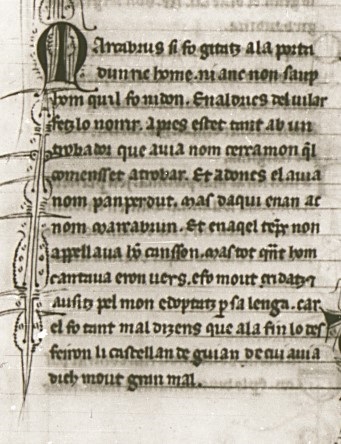 Marcabrus si fo gitatz ala porta
dun ric home. ni anc non saup
hom quil fo ni don. En aldrics del uilar
fetz lo noirir. Apres estet tant ab un
trobador que auia nom cercamon q̃l
comensset atrobar. Et adoncs el auia
nom panperdut. Mas daqui enan ac
nom marcabrun. Et en aqel temps non
appellaua hõ cansson. mas tot qãt hom
cantaua eron uers. e fo mout cridatz et
ausitz pel mon e doptatz ꝑ sa lenga. car
el fo tant mal dizens que ala fin lo des
feiron li castellan de guian de cui auia
dich mout gran mal.